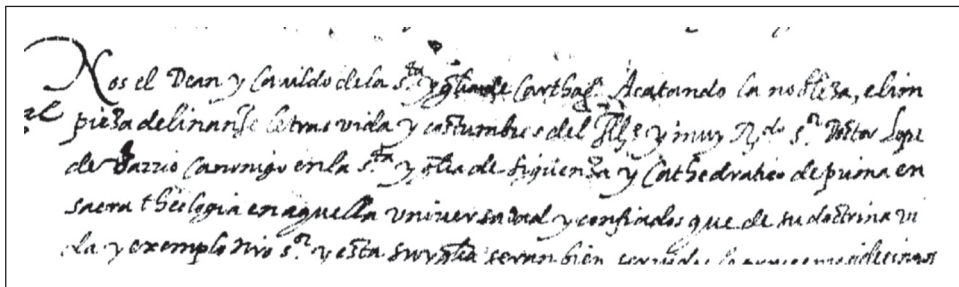 Nos el Dean y Cauildo de la s.ta ygłia de Carthag.a Acatando la nobleza, e lim
pieza de linage letras vida y costumbres del Ill.e y muy R.do s.or Doctor Lope
de Barrio Canonigo en la s.ta ygłia de Siguenza y Cathedratico de prima en
sacra theologia en aquella vniuersidad y confiados que de su doctrina vi
da y exemplo nro s.or y esta su ygłia seran bien seruidos